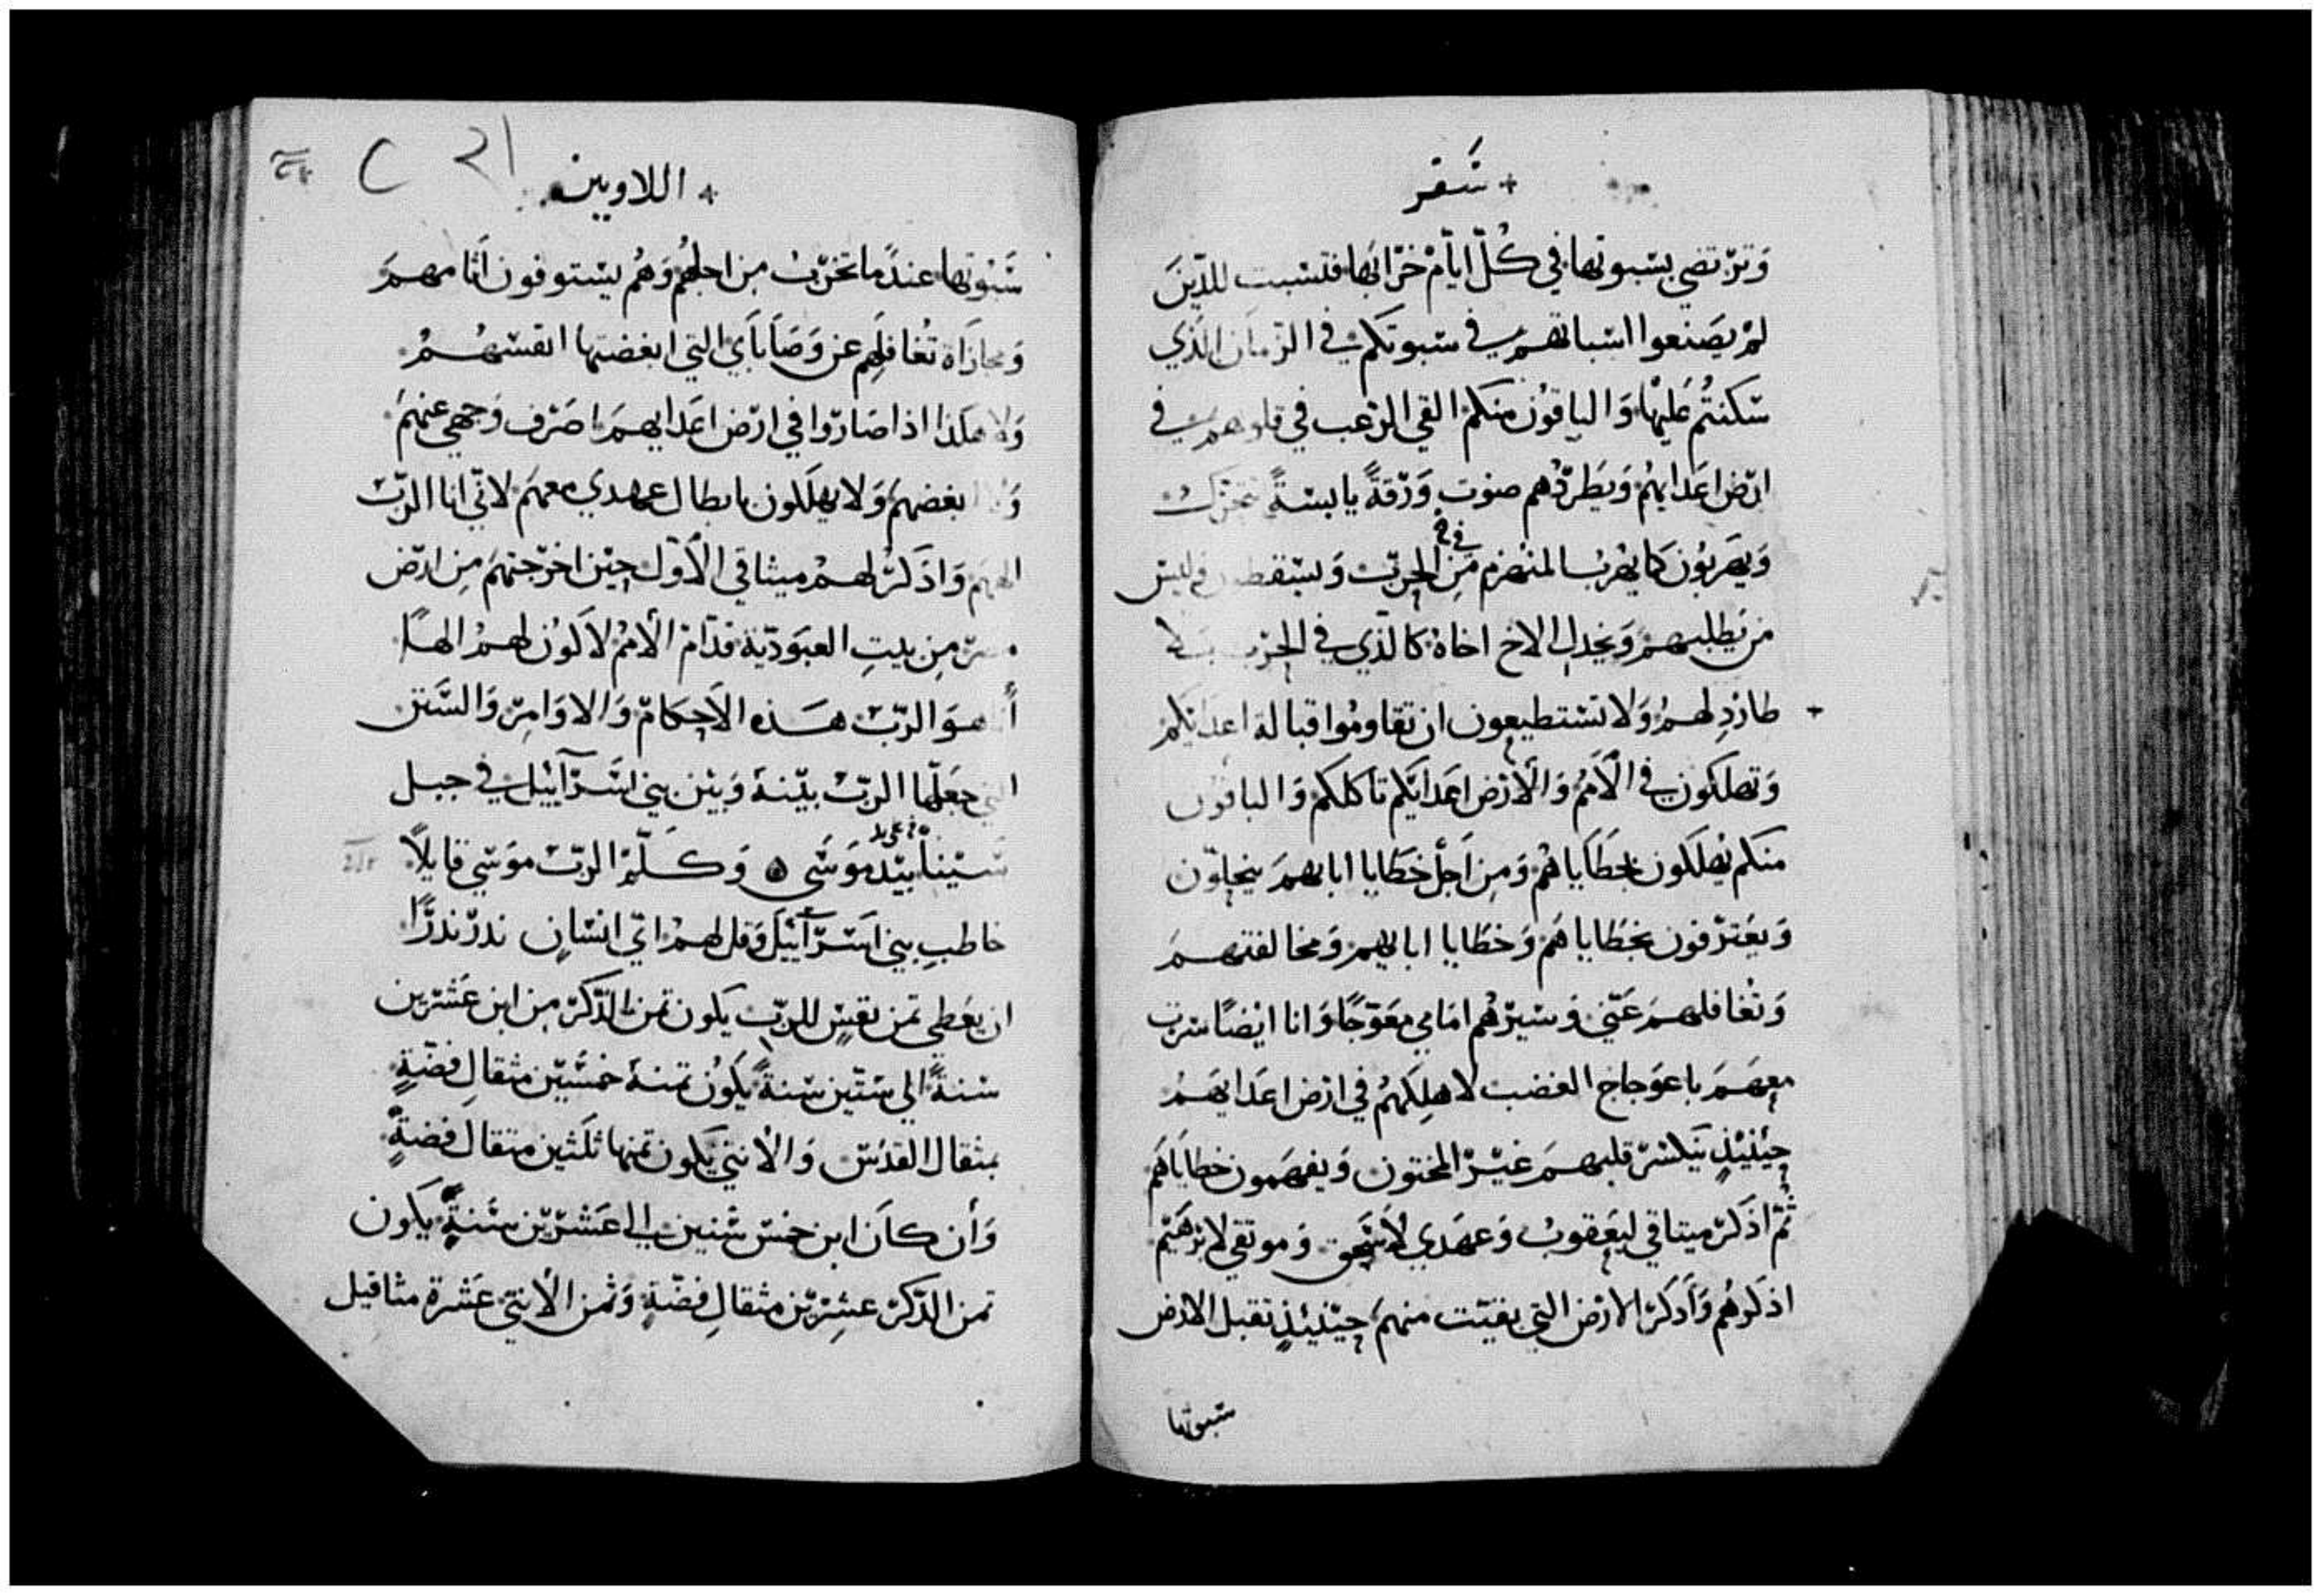 سَفر
وَترتضي بسَبوتها في كُلّ ايّام خرابها فتسبت للذينَ
لم يصَنعوا اسباتهم في سبوتكم في الزمان الذي
سَكنتُم عَليها وَالباقون منكم القي الرعب في قلوبهم في
ارض اعَدايهُم وَيَطردُهم صَوت وَرَقةً يابسَةً تتحَرك
وَيهَربُون كمَا يهُربُ المنهزم مَن في الحرَب وَيسَقطون وليسَ
من يَطلبهم وَيخدل الاخ اخاهُ كالذي في الحَرب بلا
طاردٍ لهم وَلا تسَتطيعون ان تقاومُوا قبالة اعدايكم
وَتهلكون في الاَمُم وَالاَرض اعَدايَكم تاكلكم وَالباقون
منكم يُهلكون بخطَاياهُم وَمِن اَجل خطَايا ابايهم ينحلّون
وَيعَترفون بخطَاياهُم وَخطَايا ابايهم وَمخالفتهم
وَتغافلهم عَنّي وَسَيرهُم امَامي معَوّجًا وَانا ايضًا سرت
معهَم باعوَجاج الغضب لاهلِكهُم في ارض اعَدايهَم
حينيذٍ ينكسَر قلبهم غيَر المختون وَيفهَمون خطاياهَم
ثمّ اذكر ميتاقي ليعَقوبُ وَعهَدي لاسَحق وَموتقي لابرهَيم
اذكرهُم وَاذكر الارض التي بقيَت منهم حينيذٍ تقبل الارض
سَبوتها
اللاويين
سَبوتها عندَما تخرب من اجلهُم وَهُم يسَتوفون اثامهم
وَمجازاة تغافلِهم عن وَصَاياي التي ابغضتها انفسَهُم
وَلا هكذا اذا صَاروا في ارض اعَدايهم اصَرف وَجهي عنهَم
وَلا ابغضهم وَلا يهلكون بابطال عهدي معهم لانّي انا الربّ
الههم وَاذكر لهم ميثاقي الاَول حيَن اخرجتهَم مِن ارض
مصر مِن بيتِ العبَوديّة قدام الاُممُ لاكون لهم الهًا
أنا هوَ الربّ هَذه الاَحكام وَالاوَامِر وَالسَنن
التي جعَلها الربّ بيّنهَ وَبيَن بني اسَرآييل في جبل
سَينا بيّد موَسَى وَكَلّم الربّ موَسي قايلاً
خاطب بيني اسَرآييَل وَقل لهم اي انسَانٍ ندر ندرًا
ان يعَطي تمن نفسٍ للربّ يكون تمن الذكر من ابن عَشرين
سَنةً الي سَتّين سَنةً يكَون تمنهَ خمسَين مثقالِ فضّةٍ
بمثقال القدسَ وَالانثي يكون تمنها ثلَثين متقال فضةٍ
وَأن كانَ ابن خمسَ سنين الي عَشرين سَنةً يكون
تمن الذكر عشِرين مثقالِ فضّةٍ وَثمن الانتي عَشرة مثاقيل